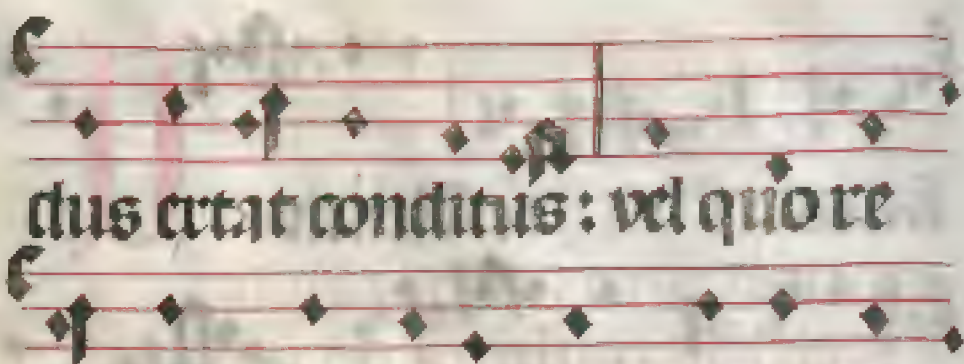 dus ertat conditus: vel quo re